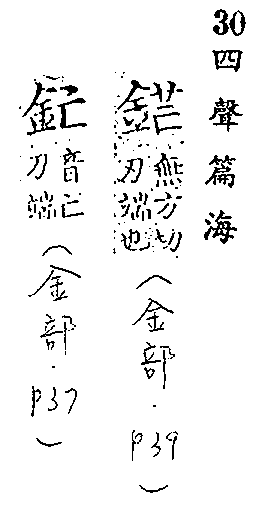 30四聲篇海
鋩無方切刃端也（金部．p39）
釯音亡刀端（金部．p37）